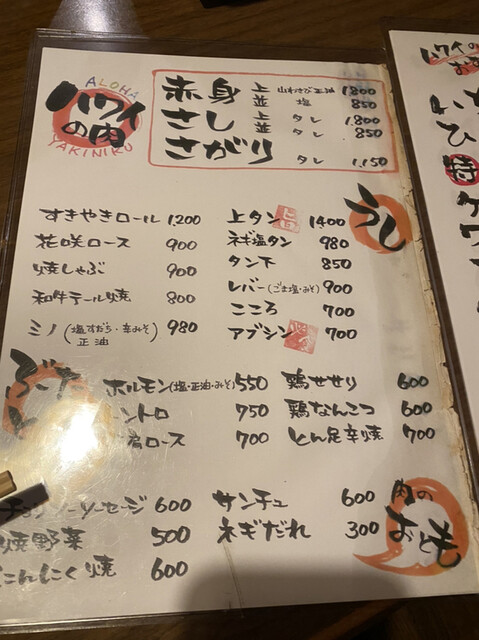 ALOHA
ハワイ
の肉
YAKINIKU
赤身 上 山わさび正油 1,800
並 塩 850
さし 上 タレ 1,800
並 タレ 850
さがり タレ 1,150
うし
すきやきロール 1,200
花咲ロース 900
焼しゃぶ 900
和牛テール焼 800
ミノ(塩すだち・辛みそ 正油) 980
上タン 1400
ネギ塩タン 980
タン下 850
レバー(ごま塩・みそ) 900
こころ 700
アブシン 700
ぶた
ホルモン(塩・正油・みそ) 550
ントロ 750
肩ロース 700
鶏せせり 600
鶏なんこつ 600
とん足辛焼 700
肉の
おとも
ソーセージ 600
焼野菜 500
にんにく焼 600
サンチュ 600
ネギだれ 300